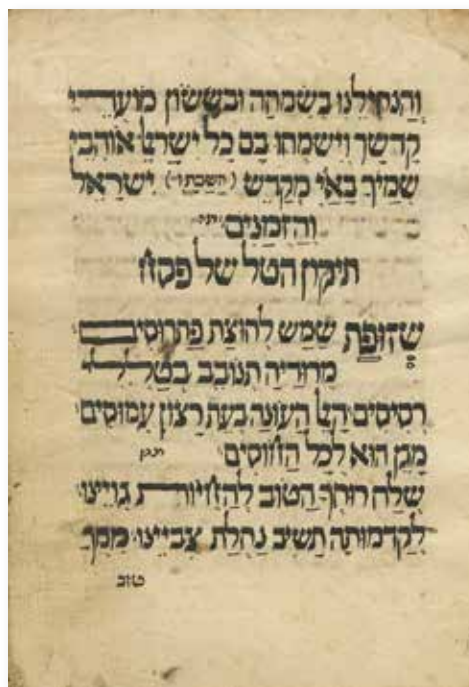 והנחילנו בשמחה ובששון מועדי
קדשך וישמחו בם כל ישראל אוהבי
שמיך באי מקדש (השבת ו) ישראל
והזמנים
תיקון הטל של פסח
שזופת שמש להוצת פתרוסים
מרודיה תנובב בטללי
רסיסים העונה בעת רצון עמוסים
מגן הוא לכל החוסים
שלח רוחך הטוב להחיות גויינו
לקדמותה תשיב נחלת צביינו ממך
טוב